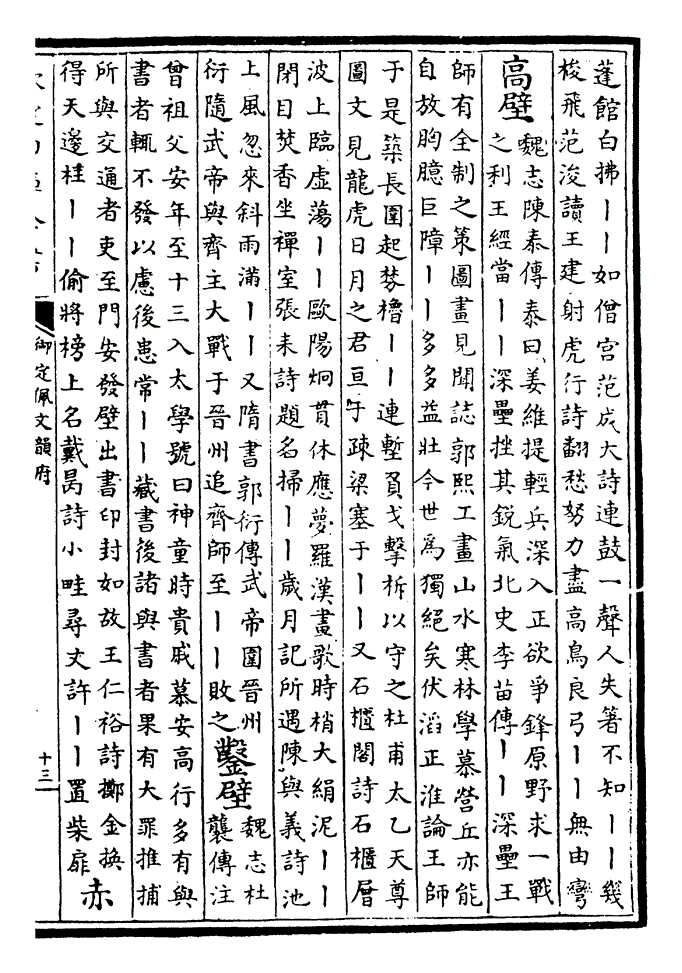 蓬館白拂丨丨如僧宫范成大詩連鼓一聲人失箸不知丨丨幾
梭飛范浚讀王建射虎行詩翻愁努力盡高鳥良弓丨丨無由彎
高壁
魏志陳泰傳泰曰姜維提輕兵深入正欲爭鋒原野求一戰
之利王經當丨丨深壘挫其鋭氣北史李苗傳丨丨深壘王
師有全制之策圖畫見聞誌郭熙工畫山水寒林學慕營丘亦能
自放胸臆巨障丨丨多多益壯今世爲獨絕矣伏滔正淮論王師
于是築長圍起棼櫓丨丨連塹負戈擊柝以守之杜甫太乙天尊
圖文見龍虎日月之君亘于疎梁塞于丨丨又石櫃閣詩石櫃層
波上臨虚蕩丨丨歐陽炯貫休應夢羅漢畫歌時梢大絹泥丨丨
閉目焚香坐禪室張耒詩題名掃丨丨歲月記所遇陳與義詩池
上風忽來斜雨滿丨丨又隋書郭衍傳武帝圍晉州
衍隨武帝與齊主大戰于晉州追齊師至丨丨敗之
鑿壁
魏志杜
襲傳注
曾祖父安年至十三入太學號曰神童時貴戚慕安高行多有與
書者輒不發以慮後患常丨丨藏書後諸與書者果有大罪推捕
所與交通者吏至門安發壁出書印封如故王仁裕詩擲金換
得天邊桂丨丨偷將榜上名戴昺詩小畦尋丈許丨丨置柴扉
赤
御定佩文韻府
十三